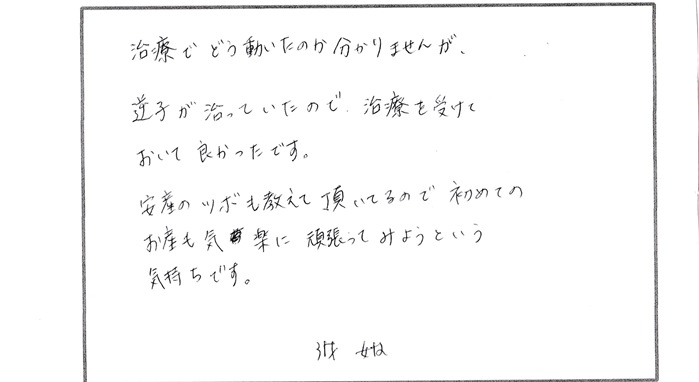 治療で どう動いたのか分かりませんが、
逆子が治っていたので、治療を受けて
おいて 良かったです。
安産のツボも教えて頂いてるので 初めての
お産も気楽に 頑張ってみようという
気持ちです。